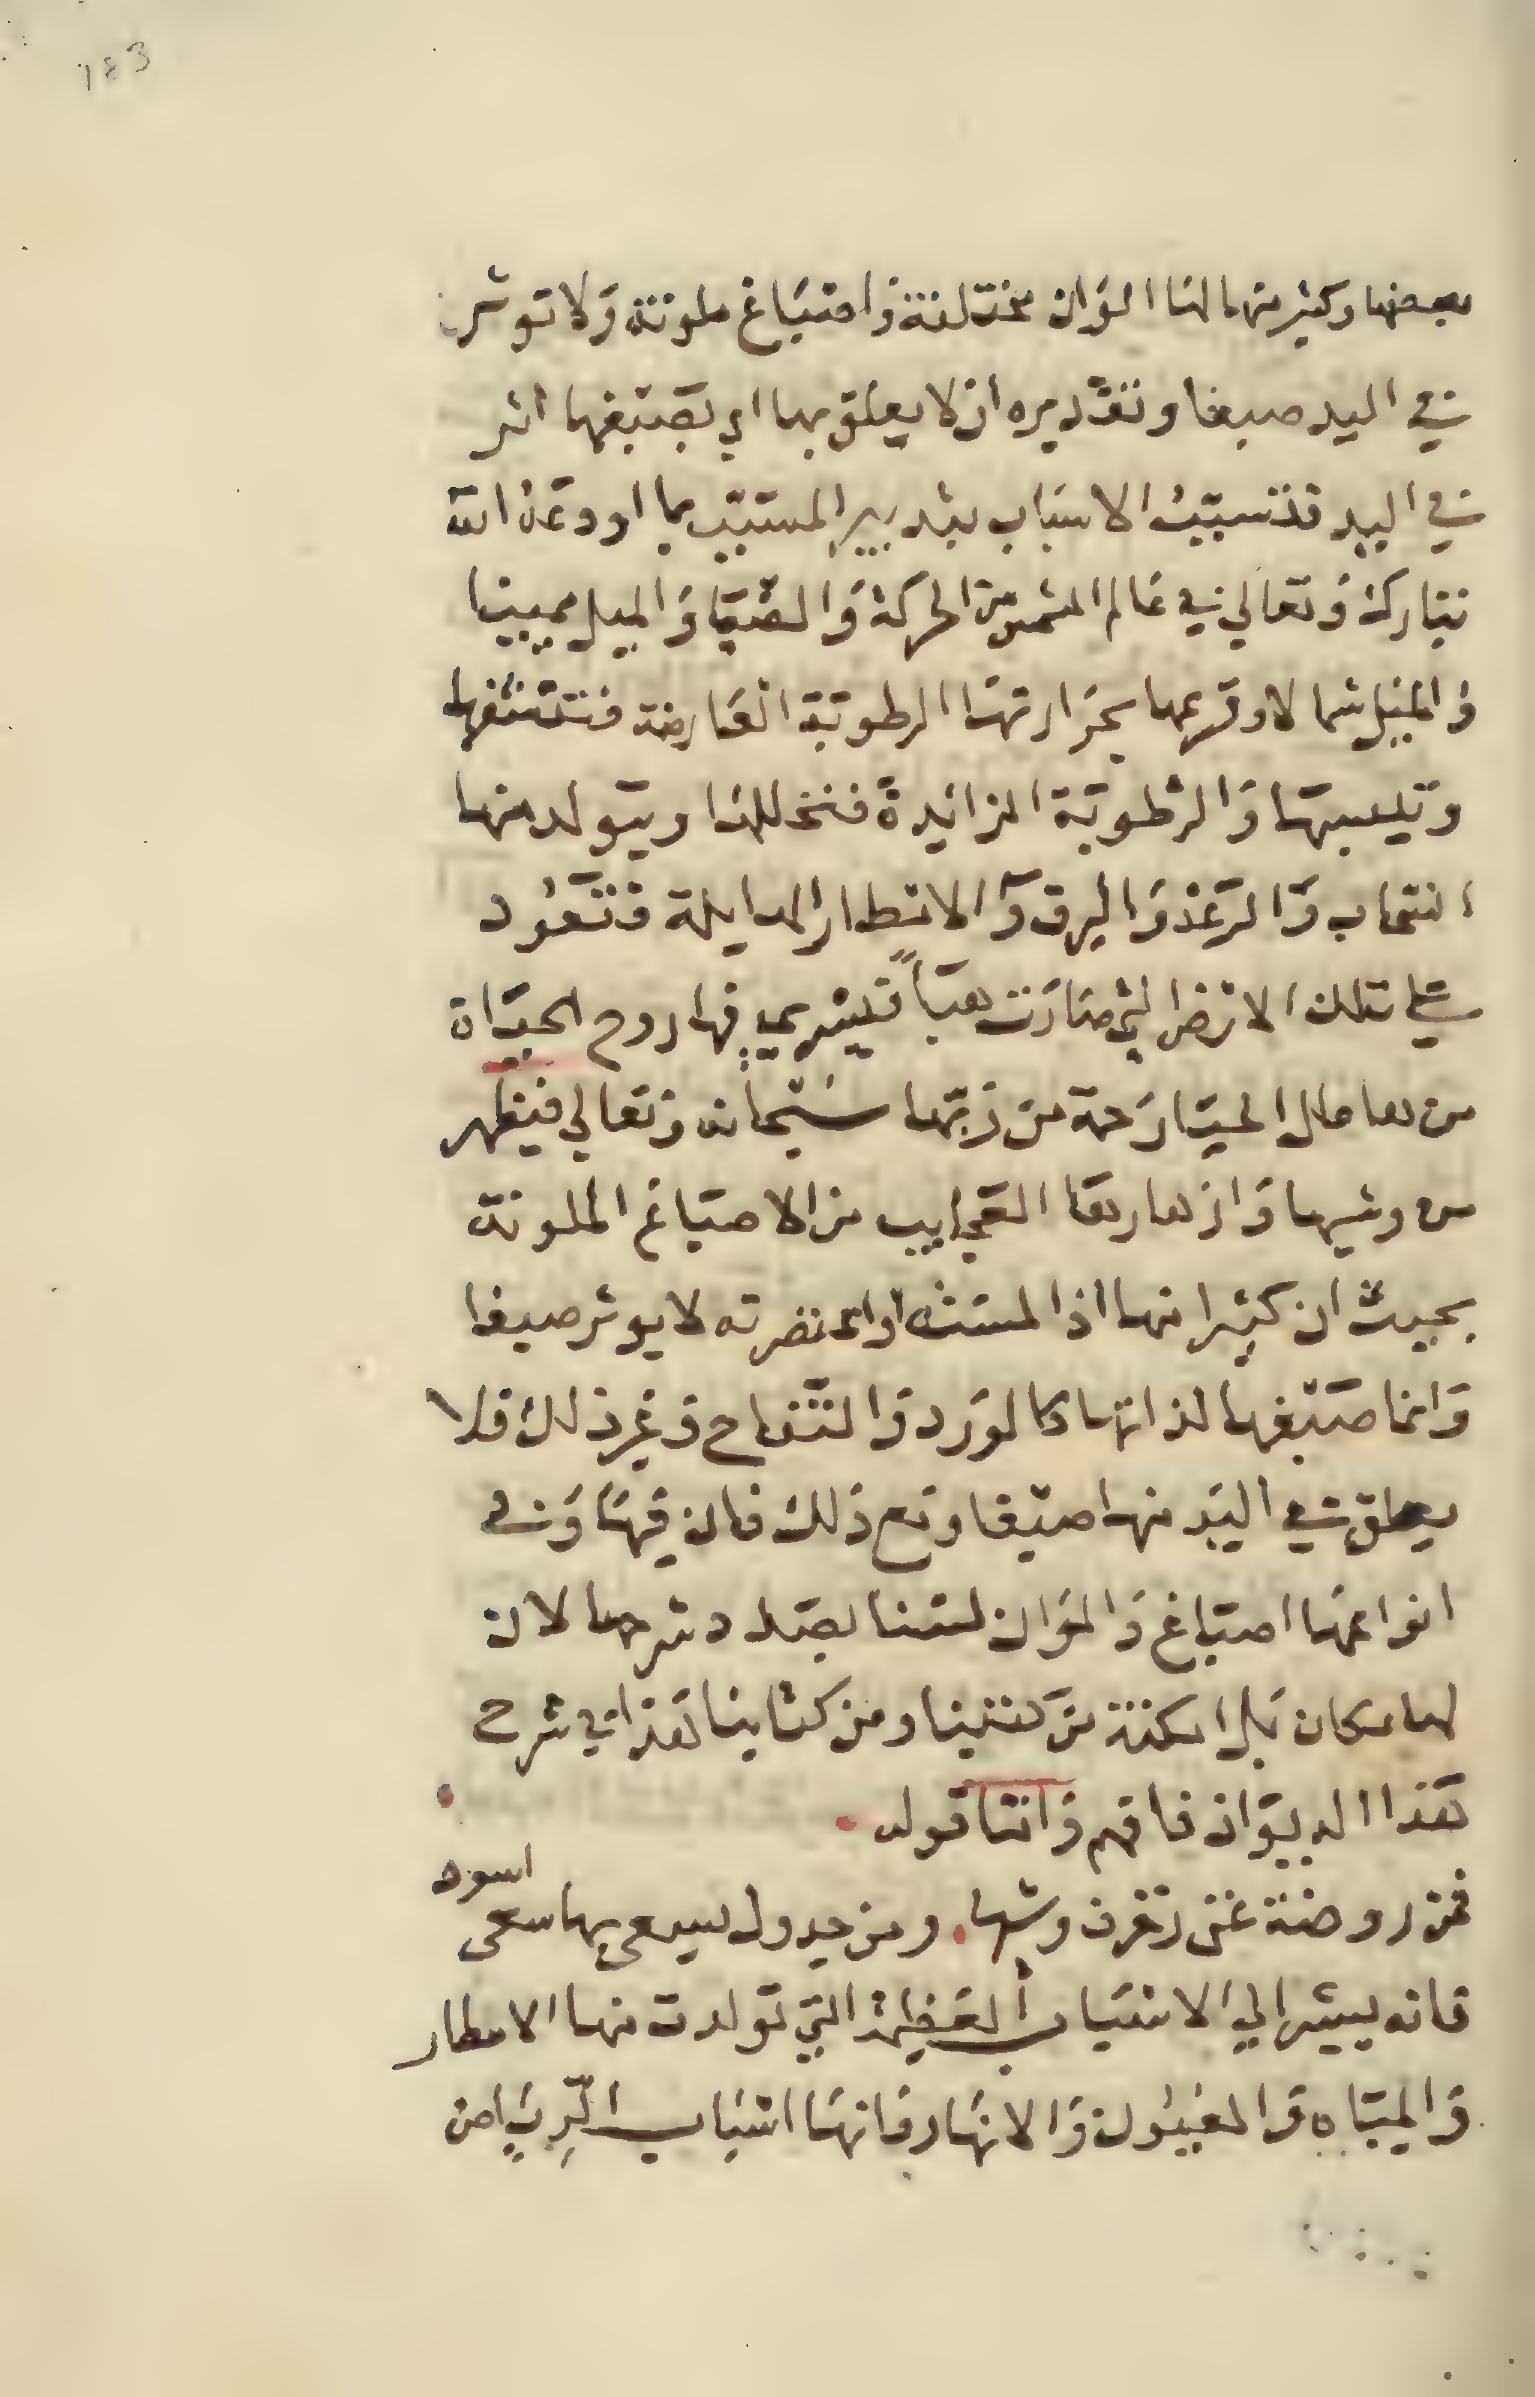 183
بعضها وكثير منها لها الوان مختلفة واصباغ ملونة ولا توثر
في اليد صبغا وتقديره ان لا يعلق بها اي بصبغها اثر
في اليد قد تسببت الاسباب بتدبير المسبب بما اودعه الله
تبارك وتعالي في عالم الشمس من الحركة والضيا والميل يمينا
والميل شمالا وقرعها بحرارتها الرطوبة العارضة فتنشفها
وتلعبها والرطوبة الزايدة فتحللها ويتولد منها
السحاب والرعد والبرق والامطار الهايلة فتعود
علي تلك الارض التي صارت هباً فيسري فيها روح الحياة
من هاطل الحيا رحمة من ربها سبحانه وتعالي فيظهر
من وشيها وازهارها العجايب من الاصباغ الملونة
بحيث ان كثيرا منها اذا لمسته او اعتصرته لا يوثر صبغا
وانما صبغها لذاتها كالورد والتفاح وغير ذلك فلا
يعلق في اليد منها صبغا ومع ذلك فان فيها وفي
انواعها اصباغ والوان لسنا بصدد شرحها لان
لها مكان بل امكنة من كتبنا ومن كتابنا هذا في شرح
هذا الديوان فافهم واما قوله
فمن روضة غنى زخرف وشيها ومن جدول يسعى بها سعى اسود
فانه يشير الي الاسباب العظيمة التي تولدت منها الامطار
والمياه والعيون والانهار فانها اسباب الري من